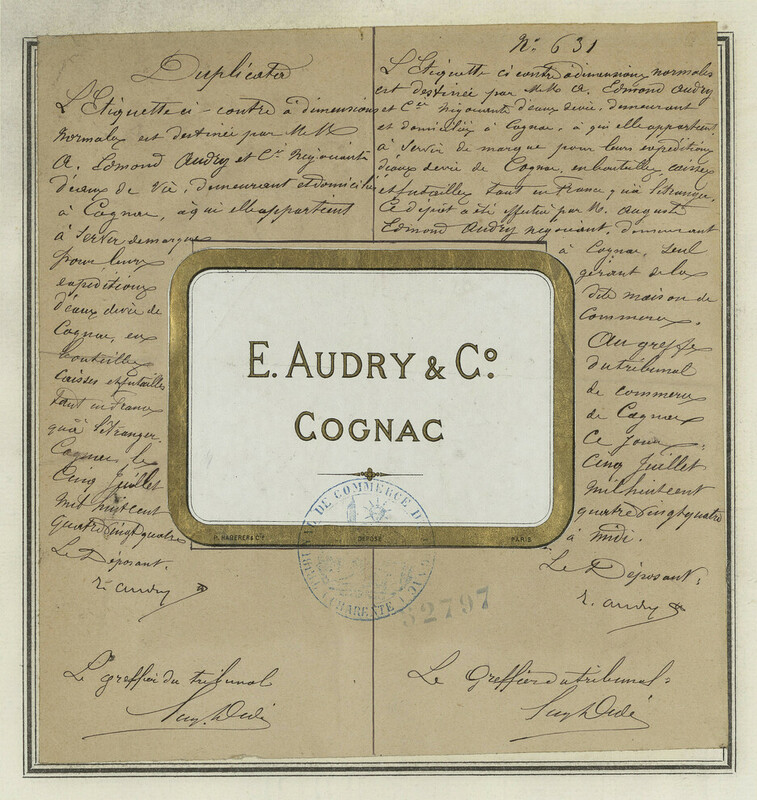 Duplicata
L'Etiquette ci-contre à dimensions
normales est destinée par MM
A. Edmond Audry et Cie Négociants
d'eaux de vie, demeurant et domiciliés
à Cognac, à qui elle appartient
à servir de marque
pour leurs
expéditions
d'eaux de vie de
Cognac, en
bouteilles
caisses et futailles
tant en France
qu'à l'étranger.
Cognac le
Cinq Juillet
Mil huit cent
quatre vingt quatre
Le Déposant.
E. Audry
Le greffier du tribunal
No 631
L'Etiquette ci contre à dimensions normales
est destinée par MM A. Edmond Audry
et Cie Négociants d'eaux de vie, demeurant
et domiciliés à Cognac, à qui elle appartient
à servir de marque pour leurs expéditions
d'eaux de vie de Cognac, en bouteilles caisses
et futailles tant en France qu'à l'étranger.
Ce dépôt a été effectué par M. Auguste
Edmond Audry négociant, demeurant
à Cognac, seul
gérant de la
dite maison de
Commerce.
Au greffe
du tribunal
de commerce
de Cognac
Ce jour
Cinq Juillet
mil huit cent
quatre vingt quatre
à midi.
Le Déposant:
E. Audry
Le Greffier du tribunal:
E. AUDRY & Co.
COGNAC
P. HABERER & Cie DÉPOSÉ PARIS
TRIBUNAL DE COMMERCE DE COGNAC
CHARENTE
32797